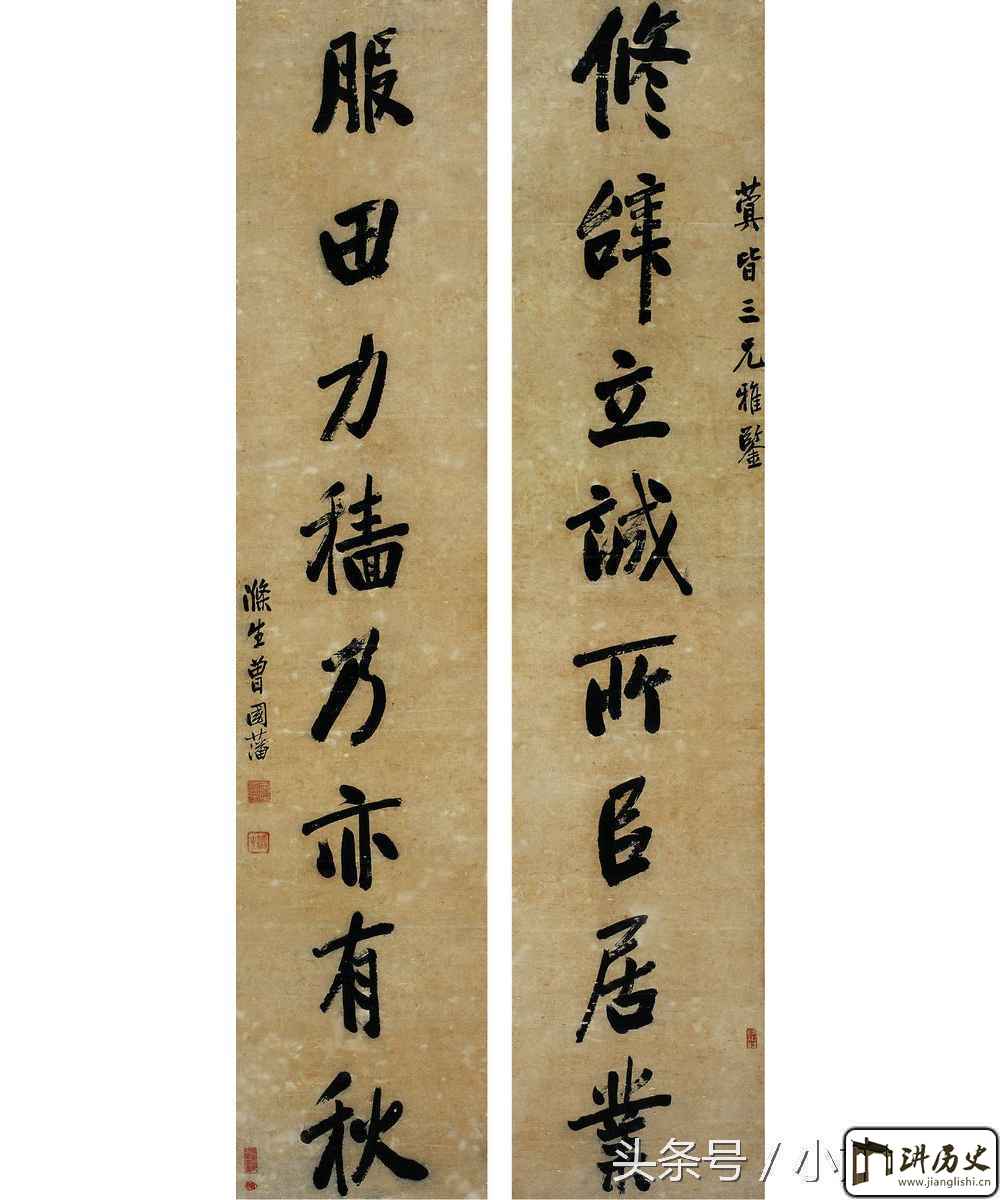 蓂皆三兄雅鑒
修辝立誠所㠯居業
服田力穡乃亦有秋
滌生曾國藩
头条号 / 小
讲历史
www.jianglishi.cn